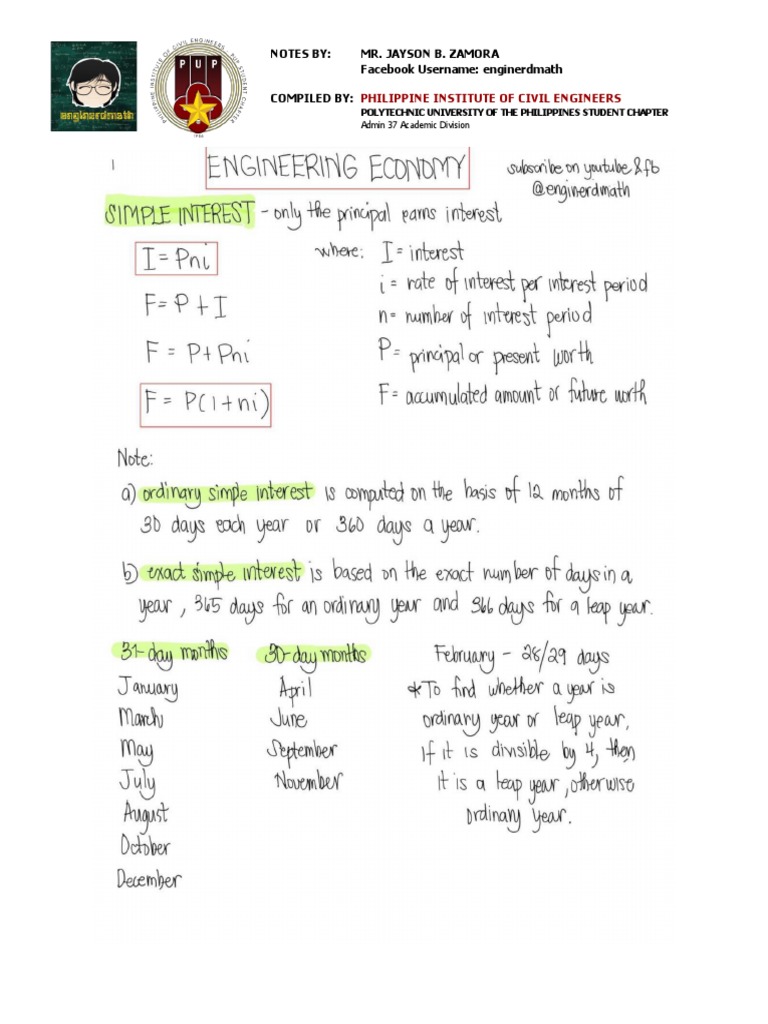 NOTES BY: MR. JAYSON B. ZAMORA
Facebook Username: enginerdmath
COMPILED BY: PHILIPPINE INSTITUTE OF CIVIL ENGINEERS
POLYTECHNIC UNIVERSITY OF THE PHILIPPINES STUDENT CHAPTER
Admin 37 Academic Division
PHILIPPINE INSTITUTE OF CIVIL ENGINEERS - PUP STUDENT CHAPTER
PUP
1
ENGINEERING ECONOMY
subscribe on youtube & fb
@enginerdmath
SIMPLE INTEREST - only the principal earns interest
I = Pni
F = P + I
F = P + Pni
F = P(1+ni)
where: I = interest
i = rate of interest per interest period
n = number of interest period
P = principal or present worth
F = accumulated amount or future worth
Note:
a) ordinary simple interest is computed on the basis of 12 months of
30 days each year or 360 days a year.
b) exact simple interest is based on the exact number of days in a
year, 365 days for an ordinary year and 366 days for a leap year.
31-day months
January
March
May
July
August
October
December
30-day months
April
June
September
November
February - 28/29 days
*To find whether a year is
ordinary year or leap year,
if it is divisible by 4, then
it is a leap year, otherwise
ordinary year.